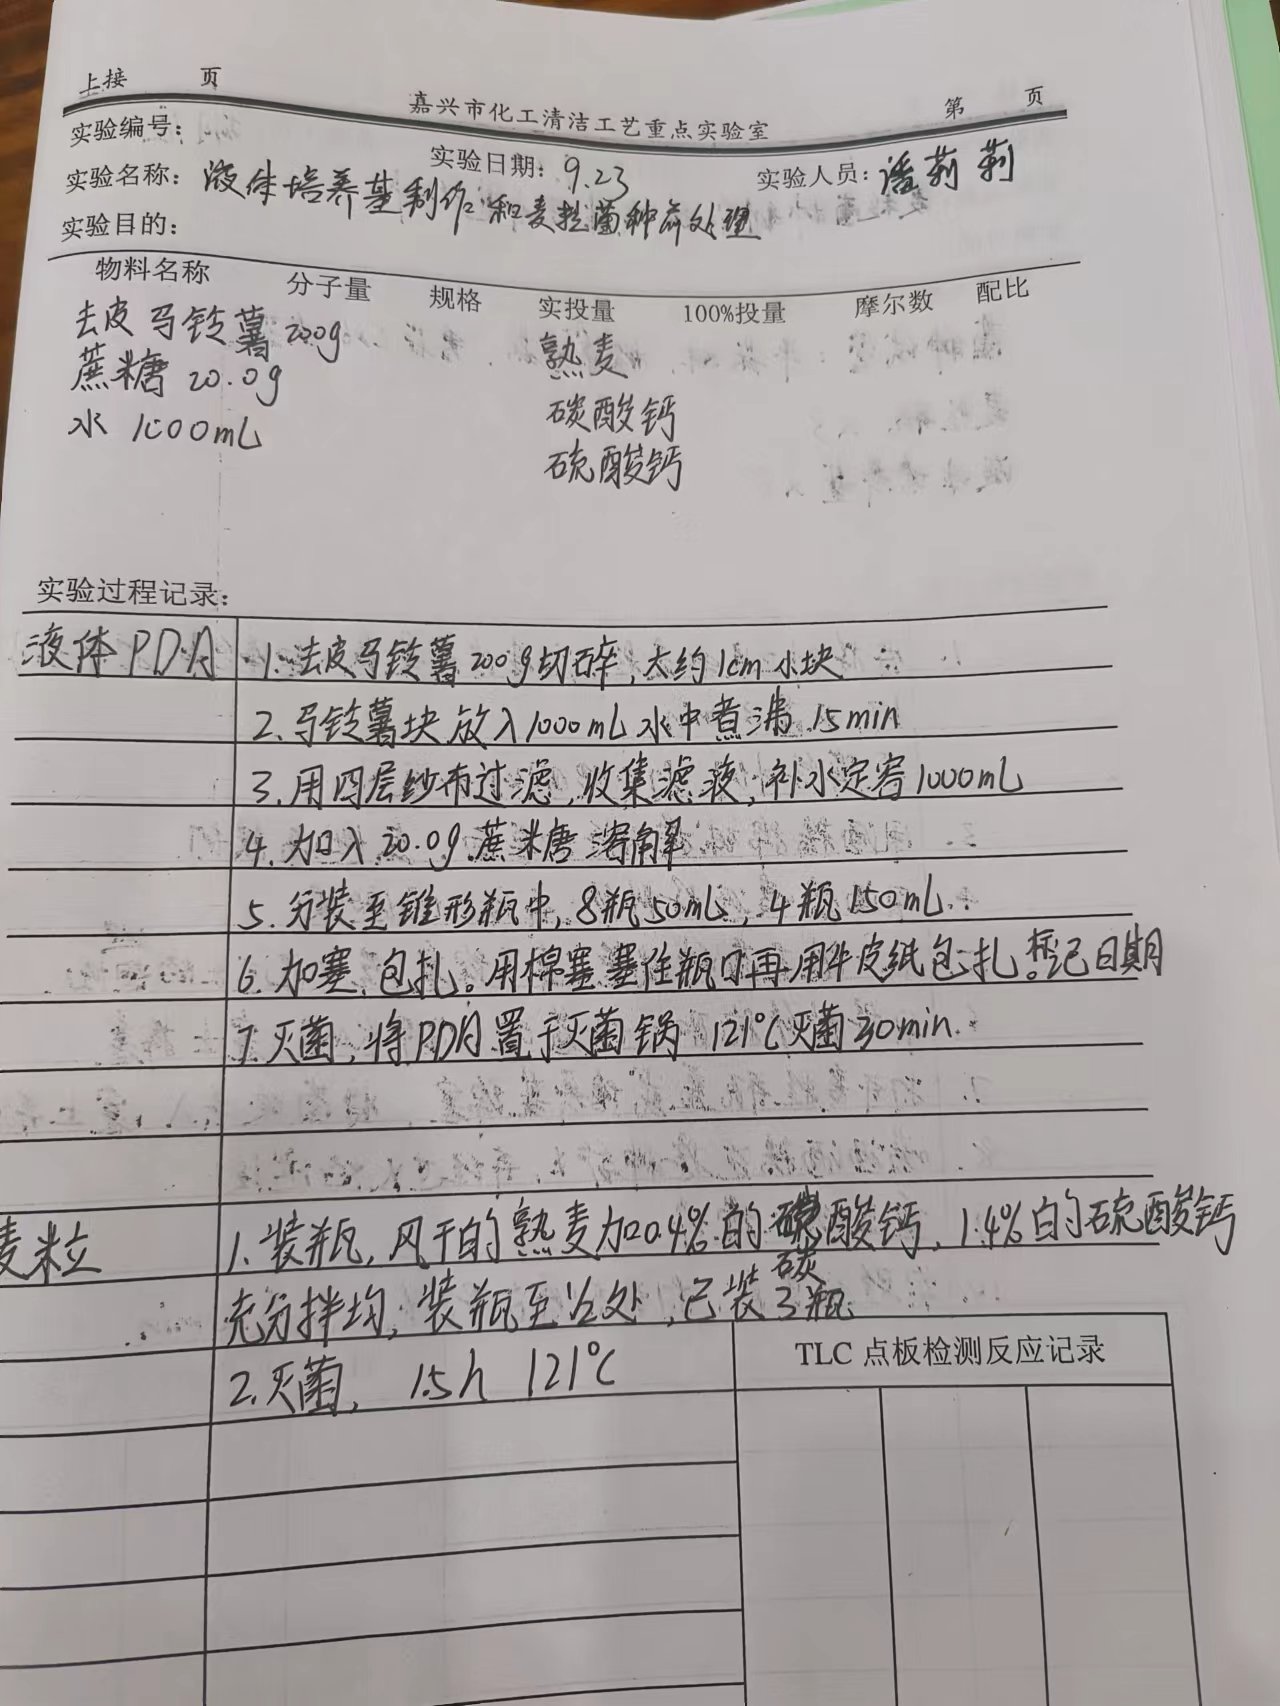 上接 页
嘉兴市化工清洁工艺重点实验室
第 页
实验编号：
实验日期：9.23
实验人员：潘莉莉
实验名称：液体培养基制作和麦粒菌种前处理
实验目的：
物料名称 分子量 规格 实投量 100%投量 摩尔数 配比
去皮马铃薯 200g 熟麦
蔗糖 20.0g 碳酸钙
水 1000mL 硫酸钙
实验过程记录：
液体PDA 1. 去皮马铃薯200g切碎，大约1cm小块
2. 马铃薯块放入1000mL水中煮沸15min
3. 用四层纱布过滤，收集滤液，补水定容1000mL
4. 加入20.0g蔗糖溶解
5. 分装至锥形瓶中，8瓶50mL，4瓶150mL.
6. 加塞、包扎。用棉塞塞住瓶口再用牛皮纸包扎。标记日期
7. 灭菌，将PDA置于灭菌锅 121℃灭菌30min.
麦粒 1. 装瓶，风干的熟麦加0.4%的碳酸钙，1.4%的硫酸钙
碳
充分拌均，装瓶至½处，已装3瓶
2. 灭菌， 1.5h 121℃
TLC 点板检测反应记录